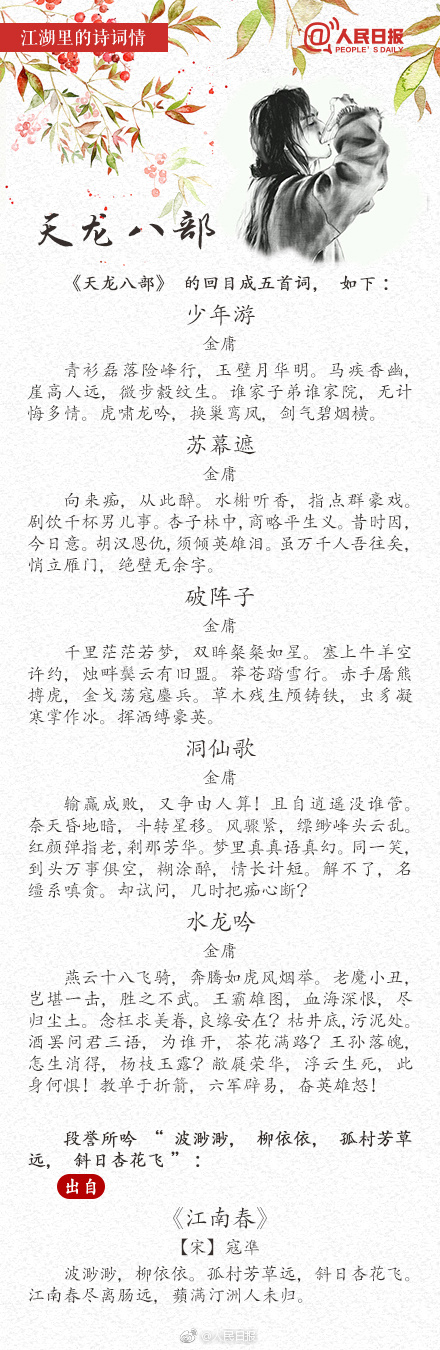 江湖里的诗词情
@人民日报
PEOPLE'S DAILY
天龙八部
《天龙八部》 的回目成五首词， 如下：
少年游
金庸
青衫磊落险峰行，玉壁月华明。马疾香幽，
崖高人远，微步縠纹生。谁家子弟谁家院，无计
悔多情。虎啸龙吟，换巢鸾凤，剑气碧烟横。
苏幕遮
金庸
向来痴，从此醉。水榭听香，指点群豪戏。
剧饮千杯男儿事。杏子林中，商略平生义。昔时因，
今日意。胡汉恩仇，须倾英雄泪。虽万千人吾往矣，
悄立雁门，绝壁无余字。
破阵子
金庸
千里茫茫若梦，双眸粲粲如星。塞上牛羊空
许约，烛畔鬓云有旧盟。莽苍踏雪行。赤手屠熊
搏虎，金戈荡寇鏖兵。草木残生颅铸铁，虫豸凝
寒掌作冰。挥洒缚豪英。
洞仙歌
金庸
输赢成败，又争由人算！且自逍遥没谁管。
奈天昏地暗，斗转星移。风骤紧，缥缈峰头云乱。
红颜弹指老，刹那芳华。梦里真真语真幻。同一笑，
到头万事俱空，糊涂醉，情长计短。解不了，名
缰系嗔贪。却试问，几时把痴心断？
水龙吟
金庸
燕云十八飞骑，奔腾如虎风烟举。老魔小丑，
岂堪一击，胜之不武。王霸雄图，血海深恨，尽
归尘土。念枉求美眷，良缘安在？枯井底，污泥处。
酒罢问君三语，为谁开，茶花满路？王孙落魄，
怎生消得，杨枝玉露？敝屣荣华，浮云生死，此
身何惧！教单于折箭，六军辟易，奋英雄怒！
段誉所吟 “ 波渺渺， 柳依依， 孤村芳草
远， 斜日杏花飞 ” ：
出自
《江南春》
【宋】寇準
波渺渺，柳依依。孤村芳草远，斜日杏花飞。
江南春尽离肠远，蘋满汀洲人未归。
@人民日报